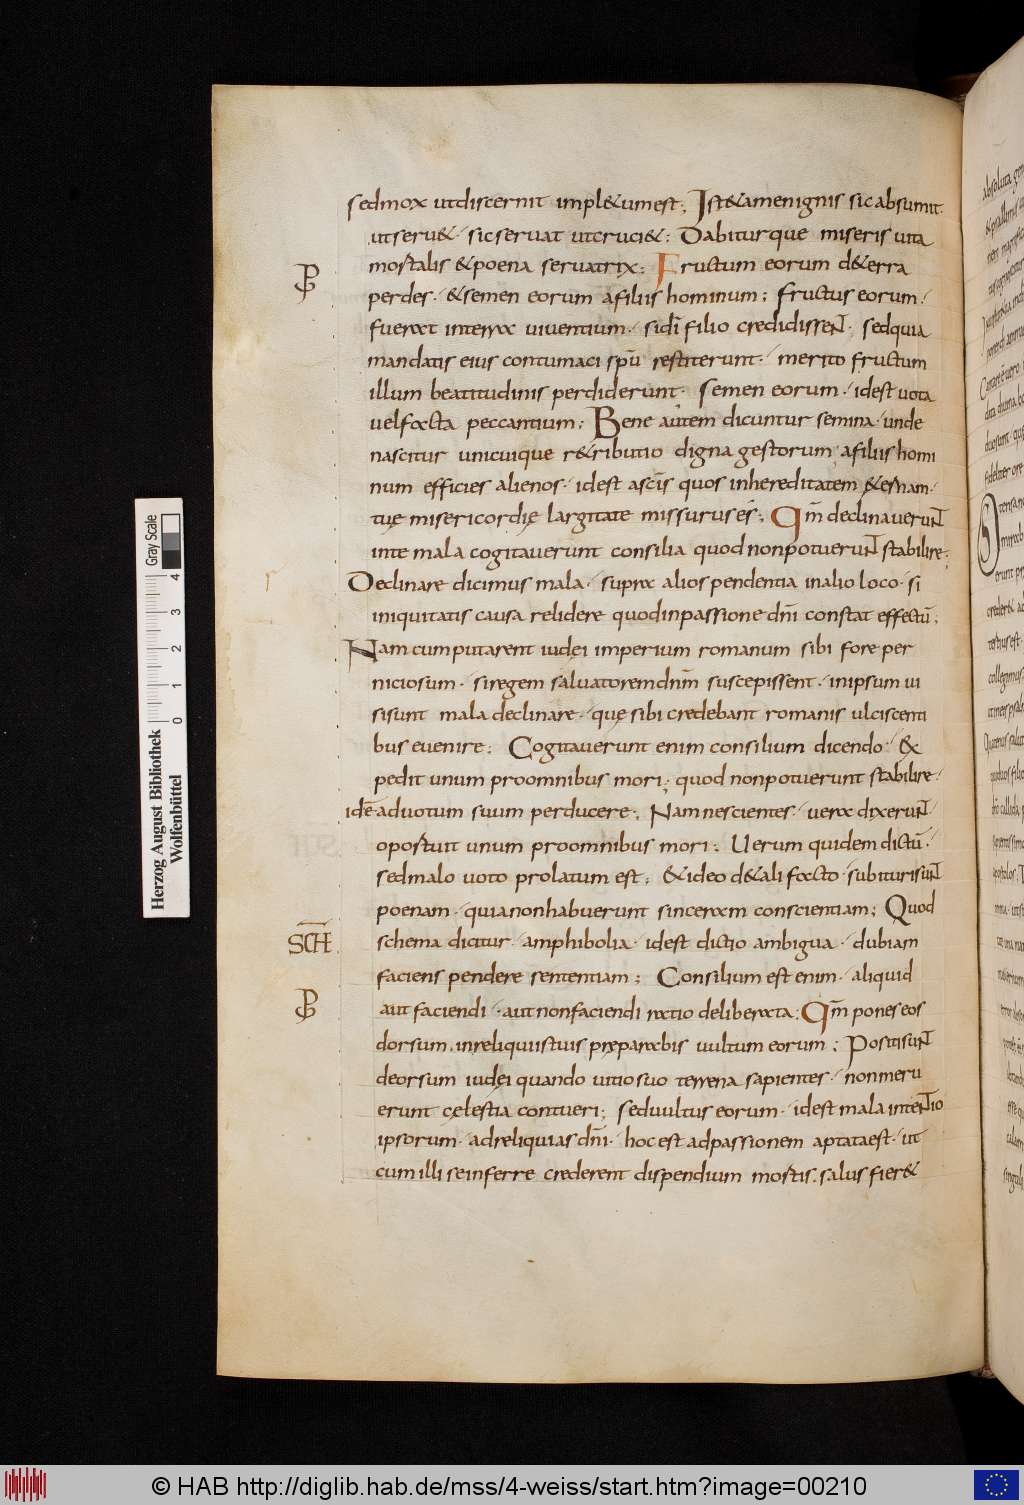 sed mox ut discernit impl&um est; Ist&amen ignis sic absumit.
ut seru&· sic seruat ut cruci&: Dabitur que miseris uita
mortalis & poena seruatrix: Fructum eorum d&erra
perdes· & semen eorum afiliis hominum; fructus eorum·
fuerat interra uiuentium· sidi filio credidisseNT· sed quia
mandatis eius contumaci spū restiterunt· merito fructum
illum beatitudinis perdiderunt· Semen eorum· idest uota
uel facta peccantium; Bene autem dicuntur semina· unde
nascitur unicuique r&ributio digna gestorum; afiliis homi
num efficies alienos· idest ascīs quos inhereditatem &ernam·
tuę misericordię largitate missurus es; Qm̄ declinaueruNT
inte mala cogitauerunt consilia quod non potueruNT stabilire;
Declinare dicimus mala· supra alios pendentia inalio loco· si
iniquitatis causa relidere quod inpassione dn̄i constat effectū;
Nam cum putarent iudęi imperium romanum sibi fore per
niciosum· siregem saluatorem dn̄m suscepissent· inipsum ui
si sunt mala declinare· quę sibi credebant romanis ulciscenti
bus euenire; Cogitauerunt enim consilium dicendo· &
pedit unum proomnibus mori; quod non potuerunt stabilire·
idē· aduotum suum perducere; Nam nescientes· uera dixeruNT·
oportuit unum proomnibus mori; Uerum quidem dictū·
sed malo uoto prolatum est; & ideo d&ali facto· subituri suNT
poenam· quia non habuerunt sinceram conscientiam; Quod
SCHE
schema dicitur· amphibolia· idest dictio ambigua· dubiam
faciens pendere sententiam; Consilium est enim· aliquid
aut faciendi· aut non faciendi ratio deliberata: Qm̄ pones eos
dorsum· inreliquiis tuis preparabis uultum eorum; Positi suNT
deorsum iudęi quando uitio suo terrena sapientes· non meru
erunt cęlestia contueri; sed uultus eorum· idest mala inteNTio
ipsorum· adreliquias dn̄i· hoc est adpassionem aptata est· ut
cum illi se inferre crederent dispendium mortis· salus fier&
Herzog August Bibliothek
Wolfenbüttel
0 1 2 3 4
Gray Scale
© HAB http://diglib.hab.de/mss/4-weiss/start.htm?image=00210